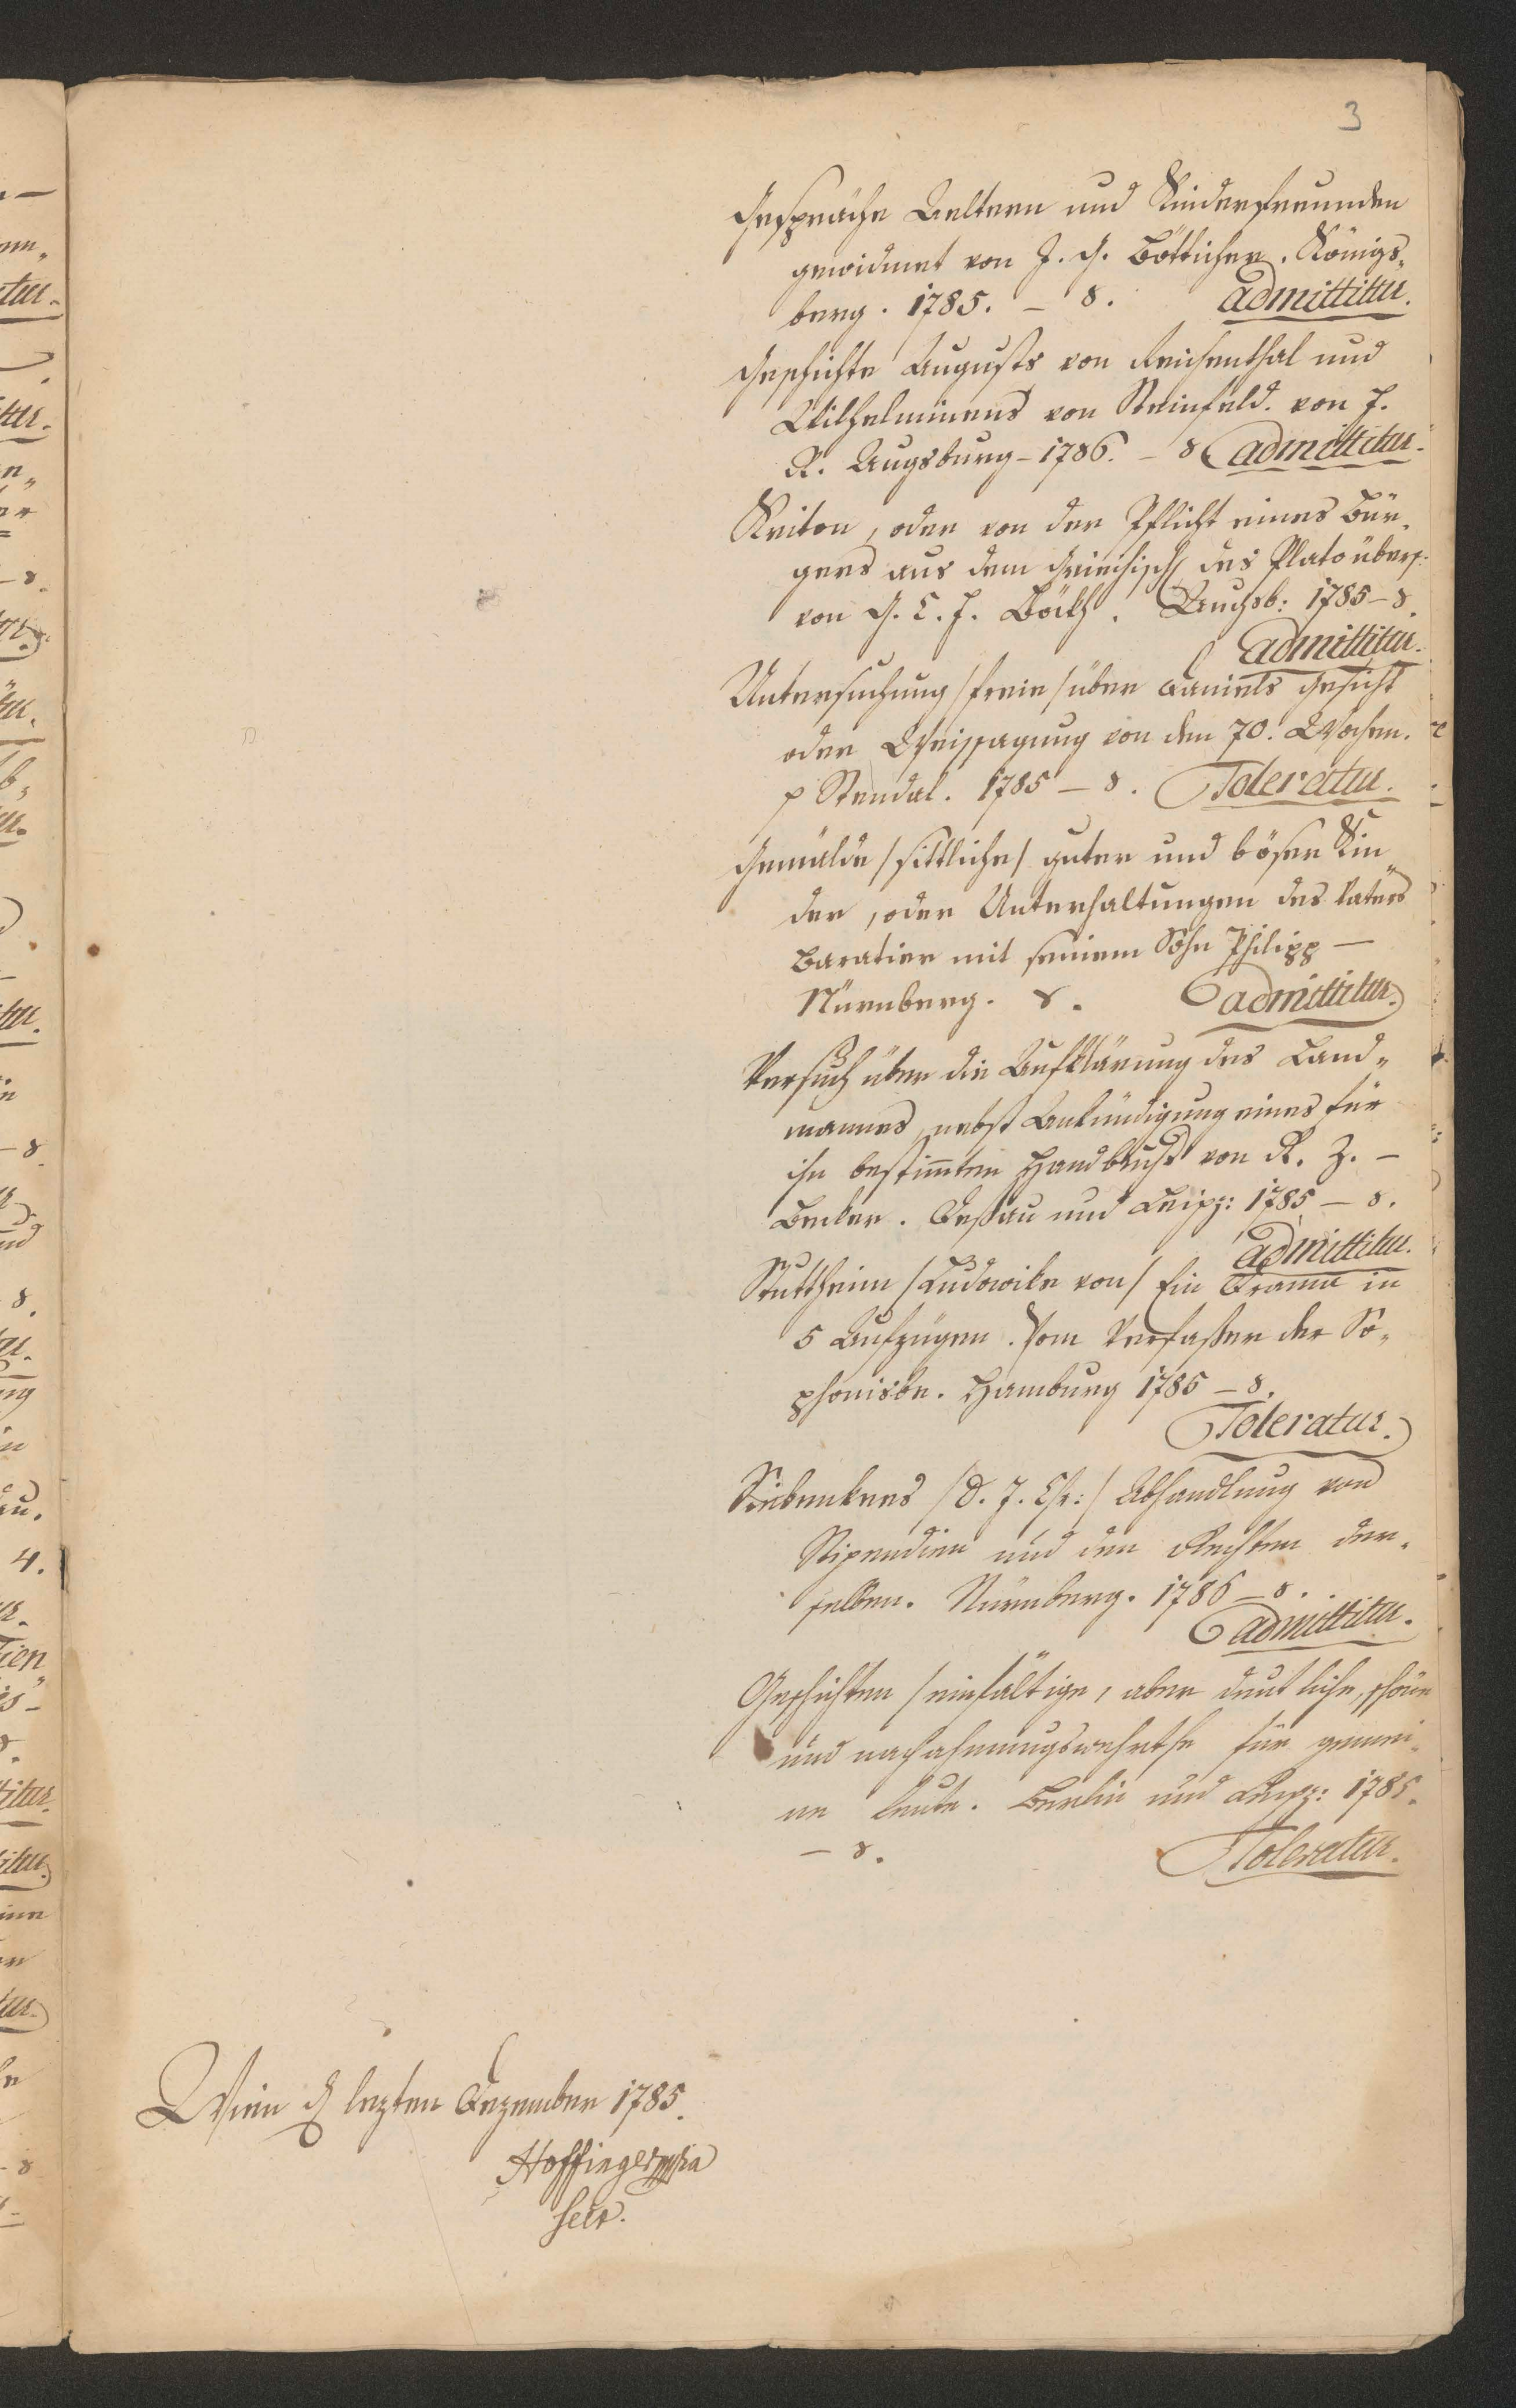 3
Gespräche Aeltern und Kinderfreunden
gewidmet von J. G. Bötticher. Königs„
berg. 1785. – 8. admittitur.
Geschichte Augusts von Reichenthal und
Wilhelminens von Steinfeld. von J.
R. Augsburg – 1786. – 8 admittitur.
Kriton, oder von der Pflicht eines Bür„
gers aus dem Griechisch des Plato übers:
von G. C. F. Böckh. Augsb: 1785 – 8.
admittitur.
Untersuchung /freie/ über Daniels Gesicht
oder Weissagung von den 70. Wochen.
Stendal. 1785 – 8. Toleratur.
Gemälde /sittliche/ guter und böser Kin„
der, oder Unterhaltungen des Vaters
Baratier mit seinem Sohn Philipp –
Nürnberg. 8. admittitur.
Versuch über die Aufklärung des Land„
mannes, nebst Ankündigung eines für
ihn bestimten Handbuchs von R. Z. –
Becker. Deßau und Leipz: 1785 – 8.
admittitur.
Stuttheim /Ludowike von/ Ein Drama in
5 Aufzügen. Vom Verfaßer der So„
phonisbe. Hamburg 1786 – 8.
Toleratur.
Siebenkees /D. J. Chr:/ Abhandlung von
Stipendien und den Rechten der„
selben. Nürnberg. 1786 – 8.
admittitur.
Geschichten /einfältige, aber deutliche, schöne
und nachahmungswehrthe für gemei„
ne Leute. Berlin und Leipz: 1785.
– 8. Toleratur.
Wien d. lezten Dezember 1785.
Hoffinger mpria
Secr.